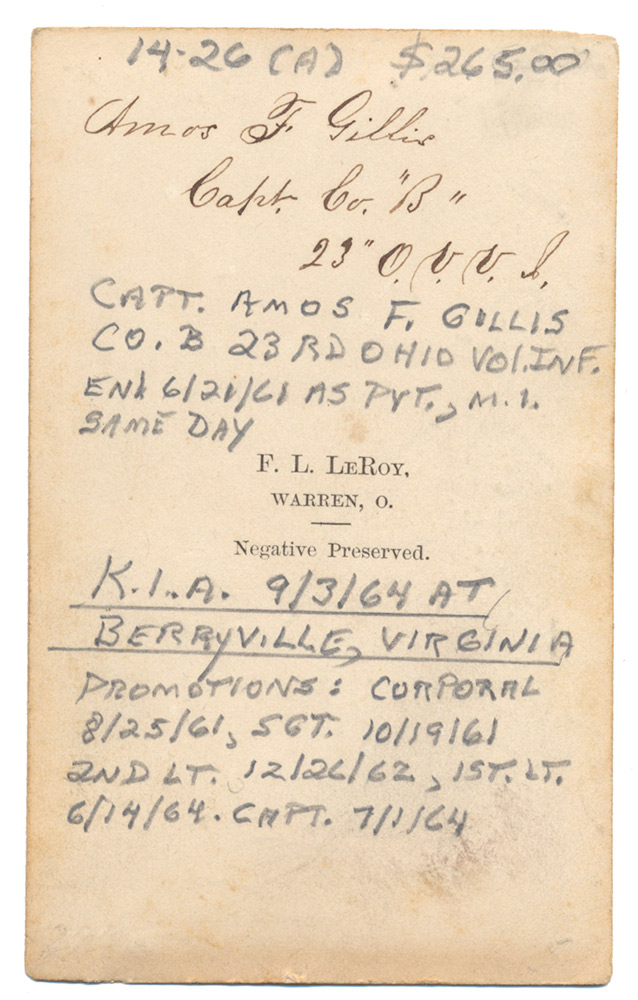 14-26 (A) $265.00
Amos F. Gillis
Capt. Co. "B"
23" O. V. V. I.
CAPT. AMOS F. GILLIS
CO. B 23RD OHIO VOL. INF.
ENL 6/21/61 AS PVT., M.I.
SAME DAY
F. L. LEROY,
WARREN, O.
Negative Preserved.
K.I.A. 9/3/64 AT
BERRYVILLE, VIRGINIA
PROMOTIONS: CORPORAL
8/25/61, SGT. 10/19/61
2ND LT. 12/26/62, 1ST. LT.
6/14/64. CAPT. 7/1/64